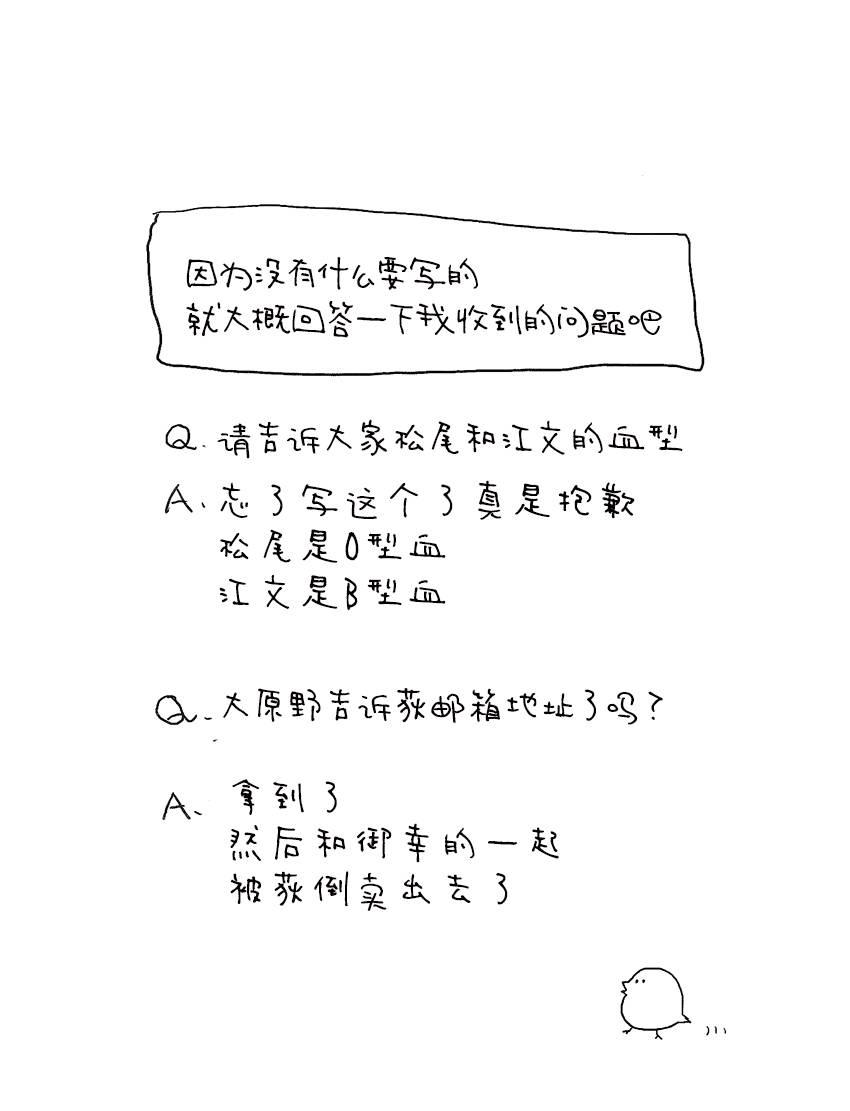 因为没有什么要写的
就大概回答一下我收到的问题吧
Q. 请告诉大家松尾和江文的血型
A. 忘了写这个了真是抱歉
松尾是O型血
江文是B型血
Q. 大原野告诉荻邮箱地址了吗?
A. 拿到了
然后和御幸的一起
被荻倒卖出去了